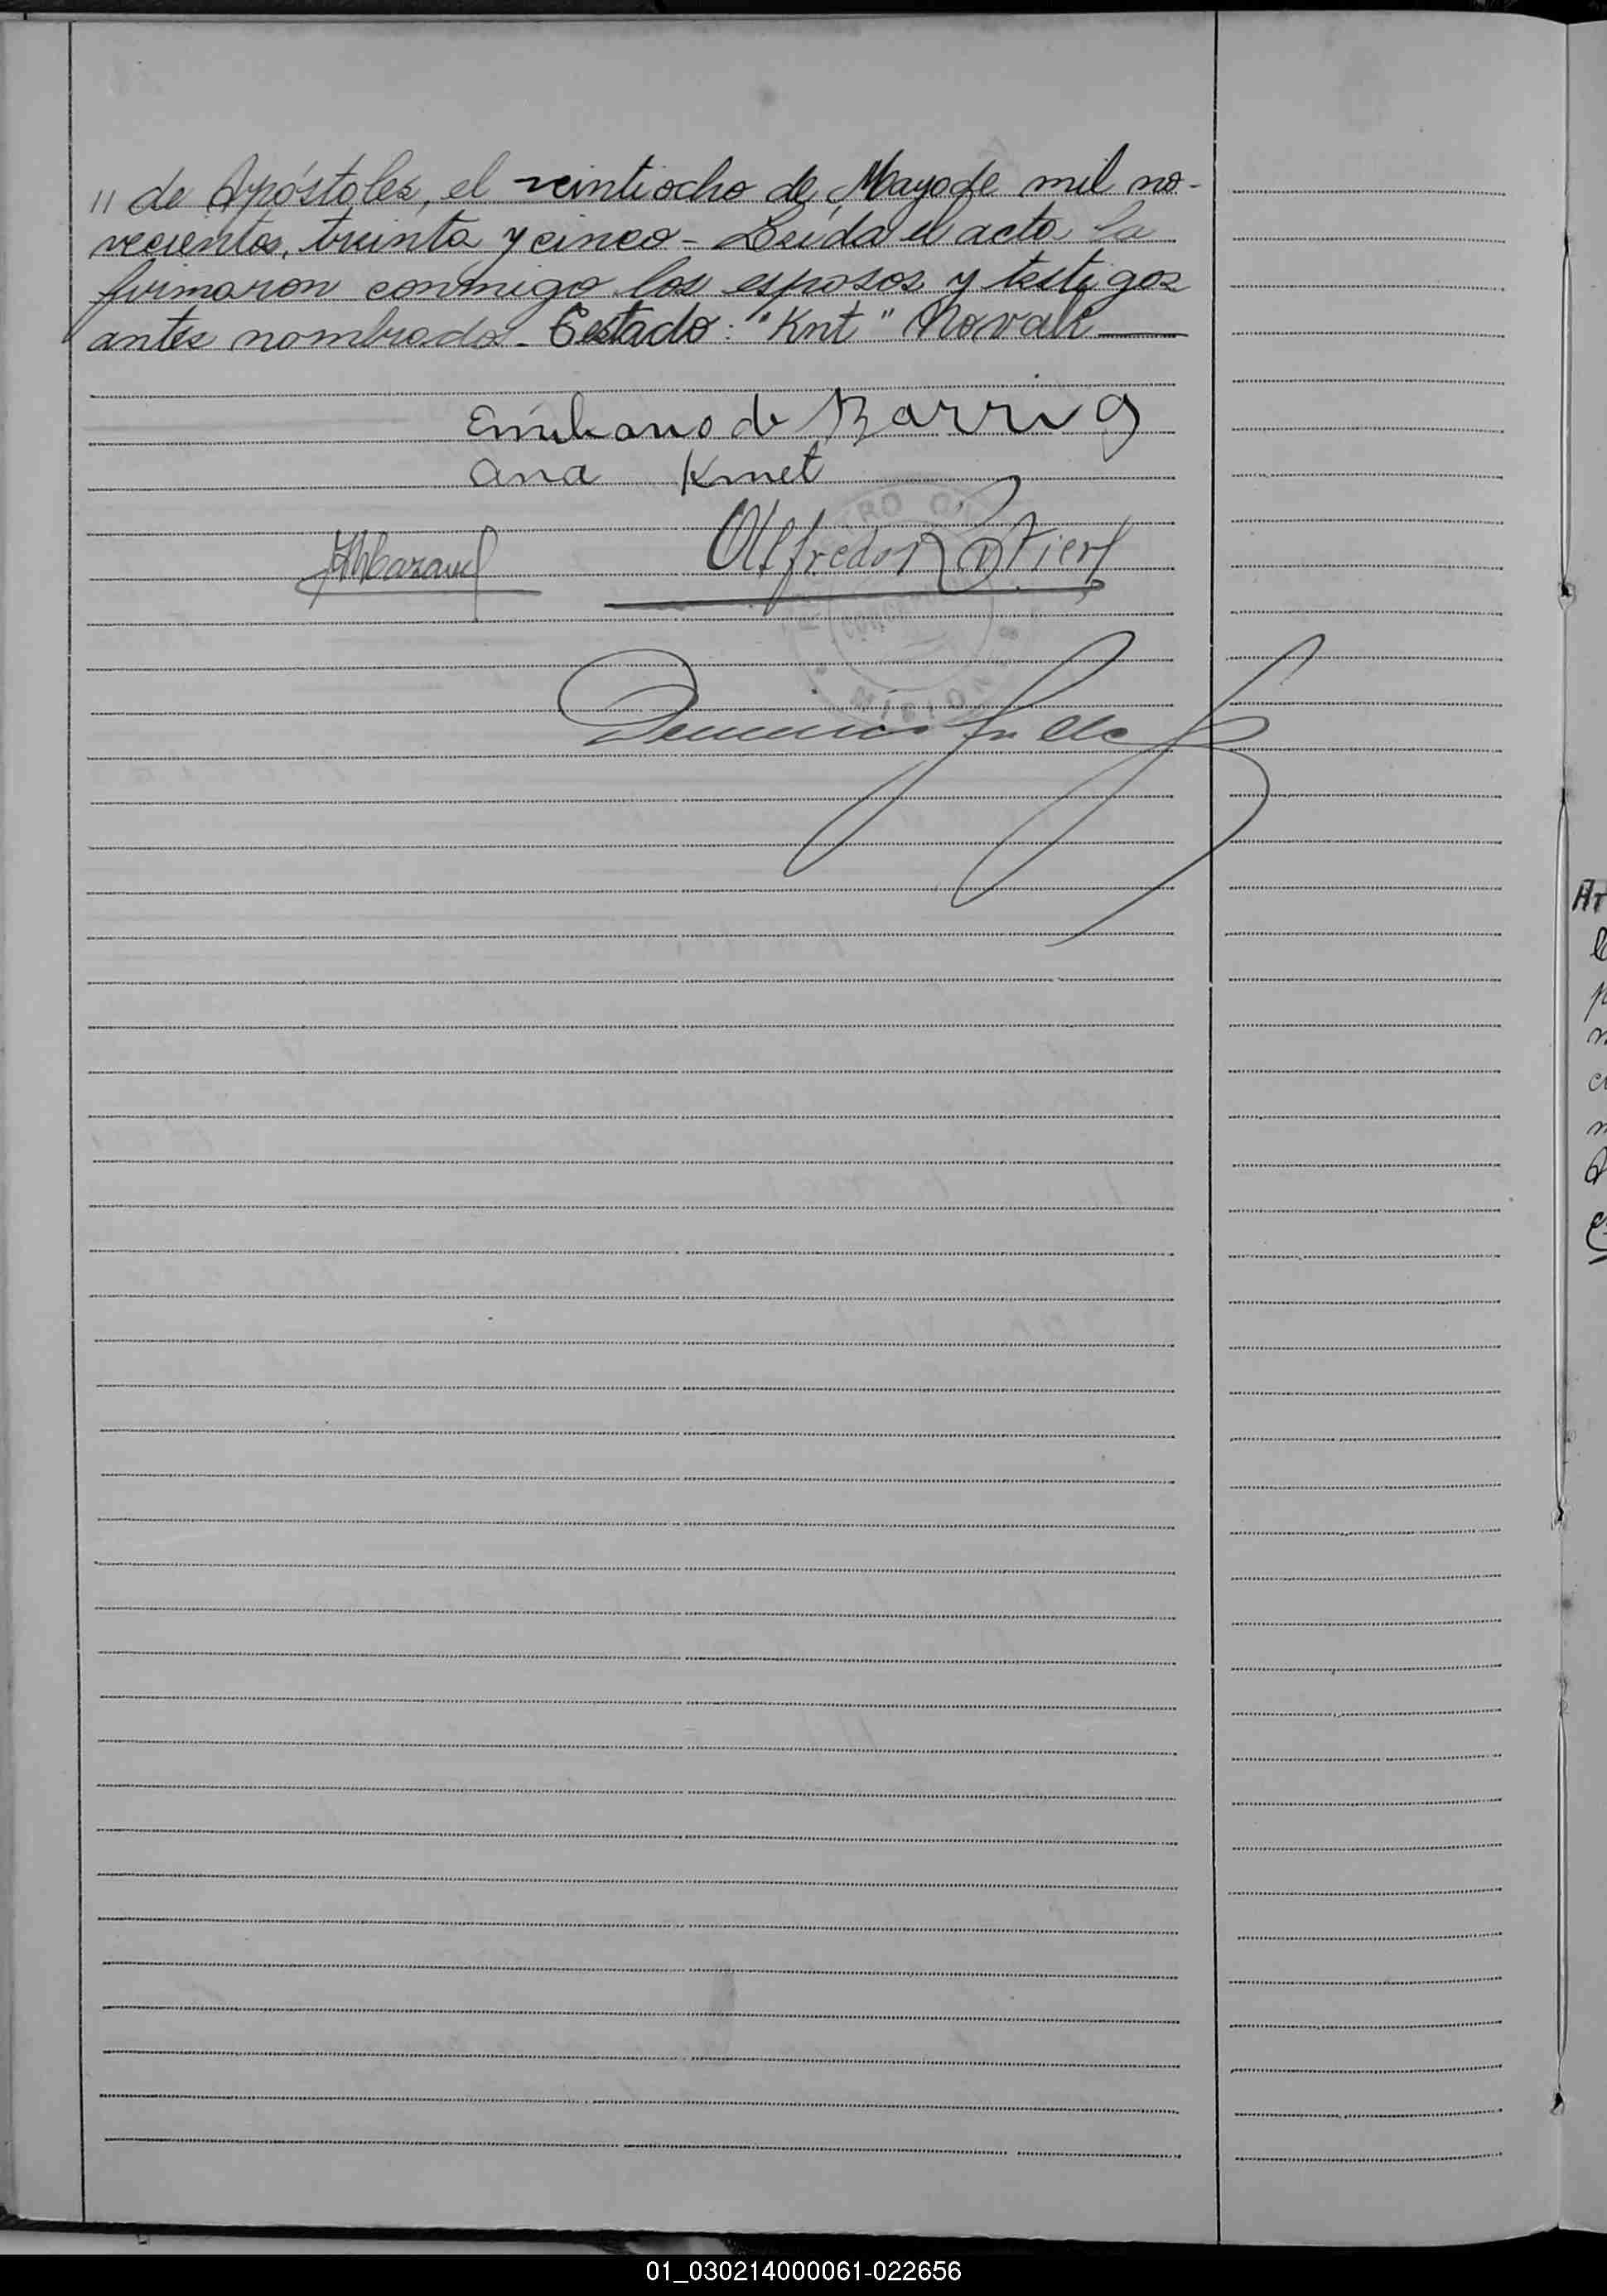 " de Apóstoles, el veintiocho de Mayo de mil no-
vecientos, treinta y cinco - Leída el acta la
firmaron conmigo los esposos y testigos
antes nombrados - Testado: "Knt" Novak
Emiliano de Barrio
Ana Kmet
Alfredo
01_030214000061-022656